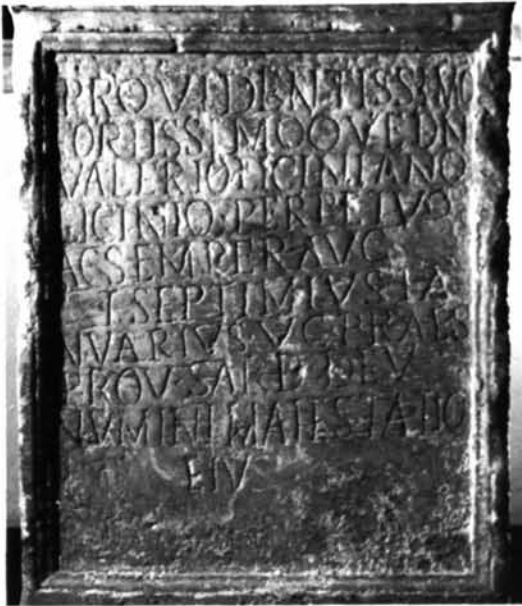 PROVIDENTISSIMO
FORTISSIMOQVE DN
VALERIO LICINIANO
LICINIO PERPETVO
AC SEMPER AVG
T SEPTIMIVS IA
NVARIVS VC PRAES
PROV SARD DEV
NVMINI MAIESTATIQ
EIVS